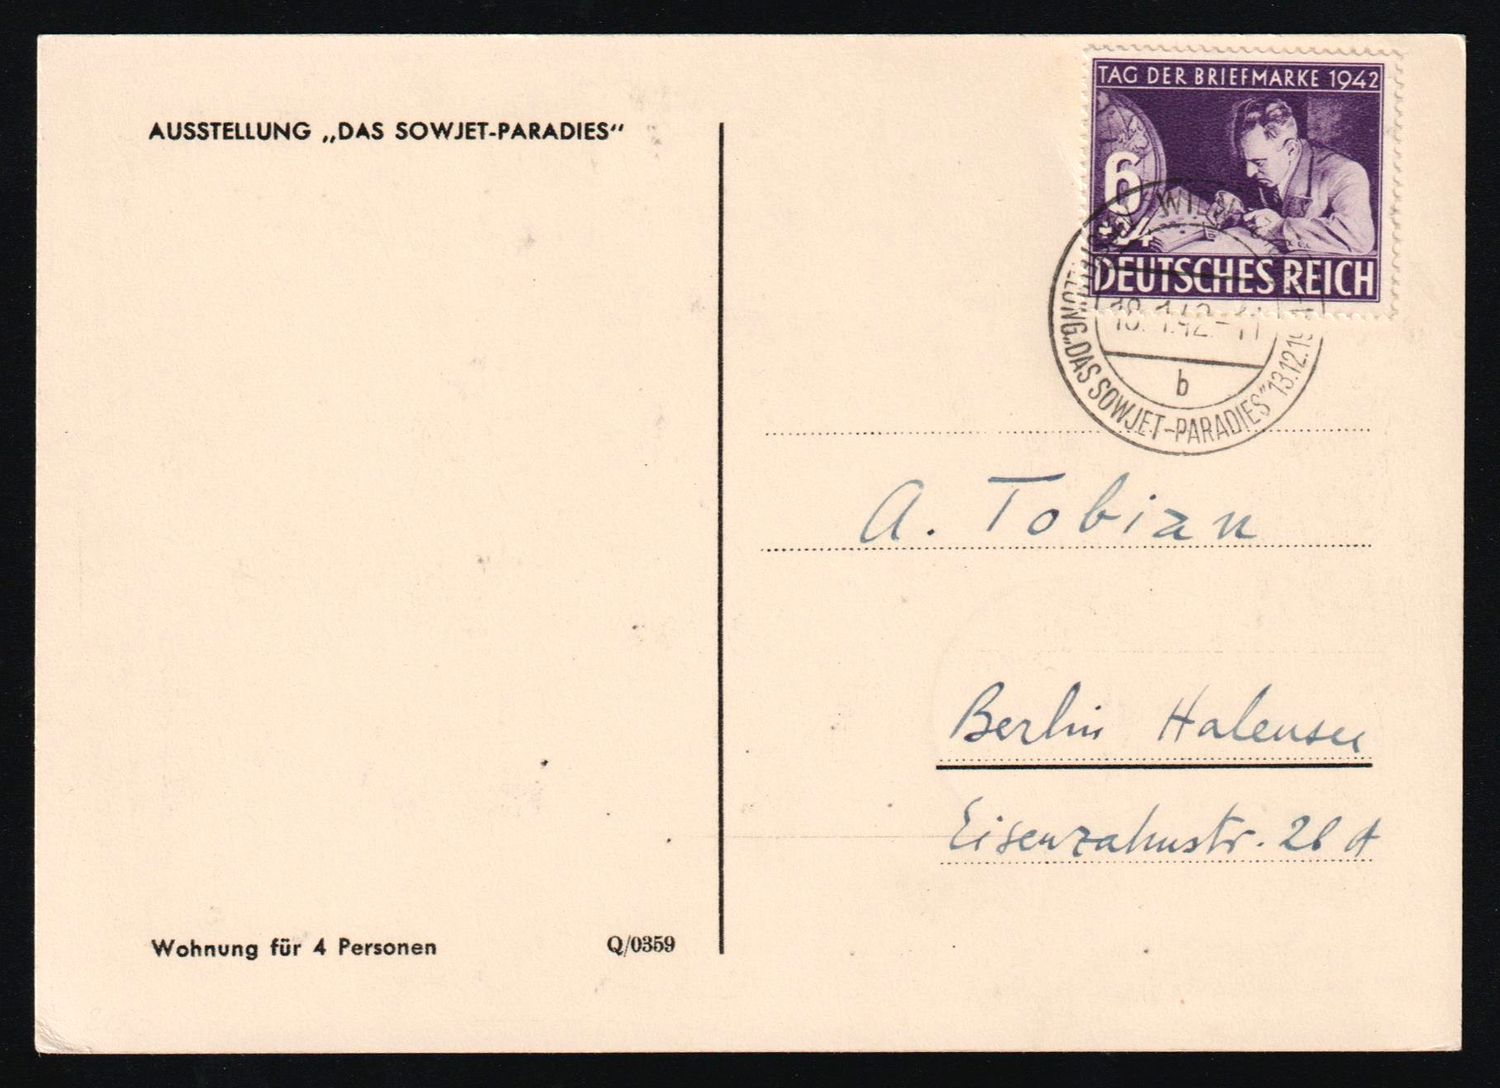 AUSSTELLUNG „DAS SOWJET-PARADIES“
TAG DER BRIEFMARKE 1942
6
+24
DEUTSCHES REICH
WIEN
18.1.42.-11
b
„DAS SOWJET-PARADIES“ 13.12.19
A. Tobian
Berlin Halensee
Eisenzahnstr. 28 A
Wohnung für 4 Personen
Q/0359